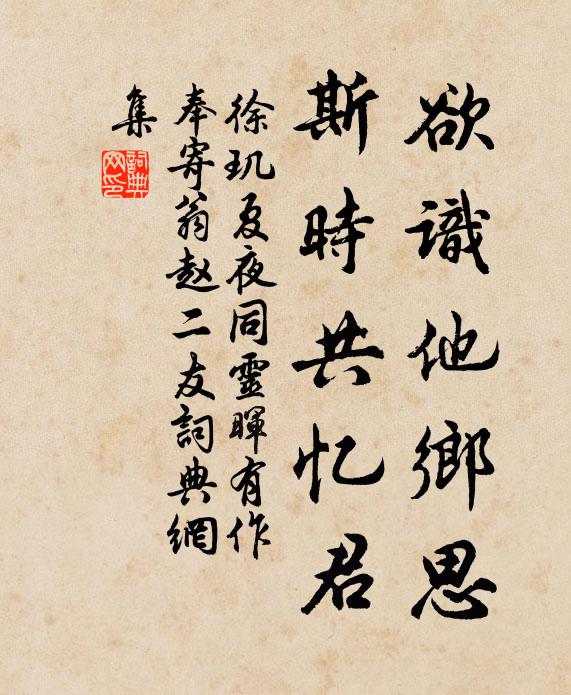 欲識他鄉思
斯時共忆君
徐玑夏夜同靈暉有作
奉寄翁赵二友詞典網
集
詞典
网印